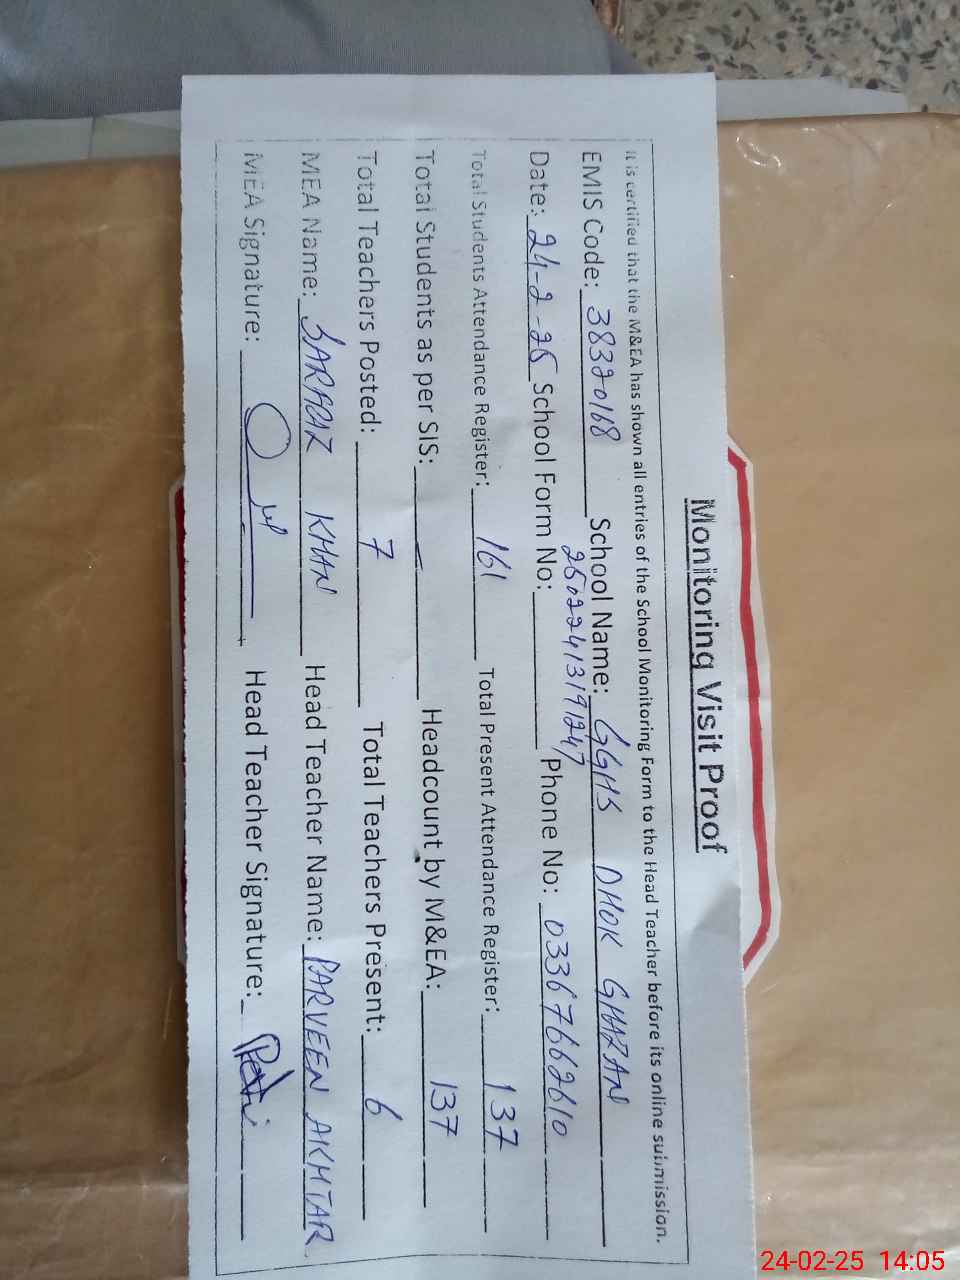 Monitoring Visit Proof
It is certified that the M&EA has shown all entries of the School Monitoring Form to the Head Teacher before its online submission.
EMIS Code: 38320168 School Name: GGHS DHOK GHAZAN
Date: 24-2-25 School Form No: 25022413191247 Phone No: 03367662610
Total Students Attendance Register: 161 Total Present Attendance Register: 137
Total Students as per SIS: — Headcount by M&EA: 137
Total Teachers Posted: 7 Total Teachers Present: 6
MEA Name: SARFRAZ KHAN Head Teacher Name: PARVEEN AKHTAR
MEA Signature: Head Teacher Signature:
24-02-25 14:05